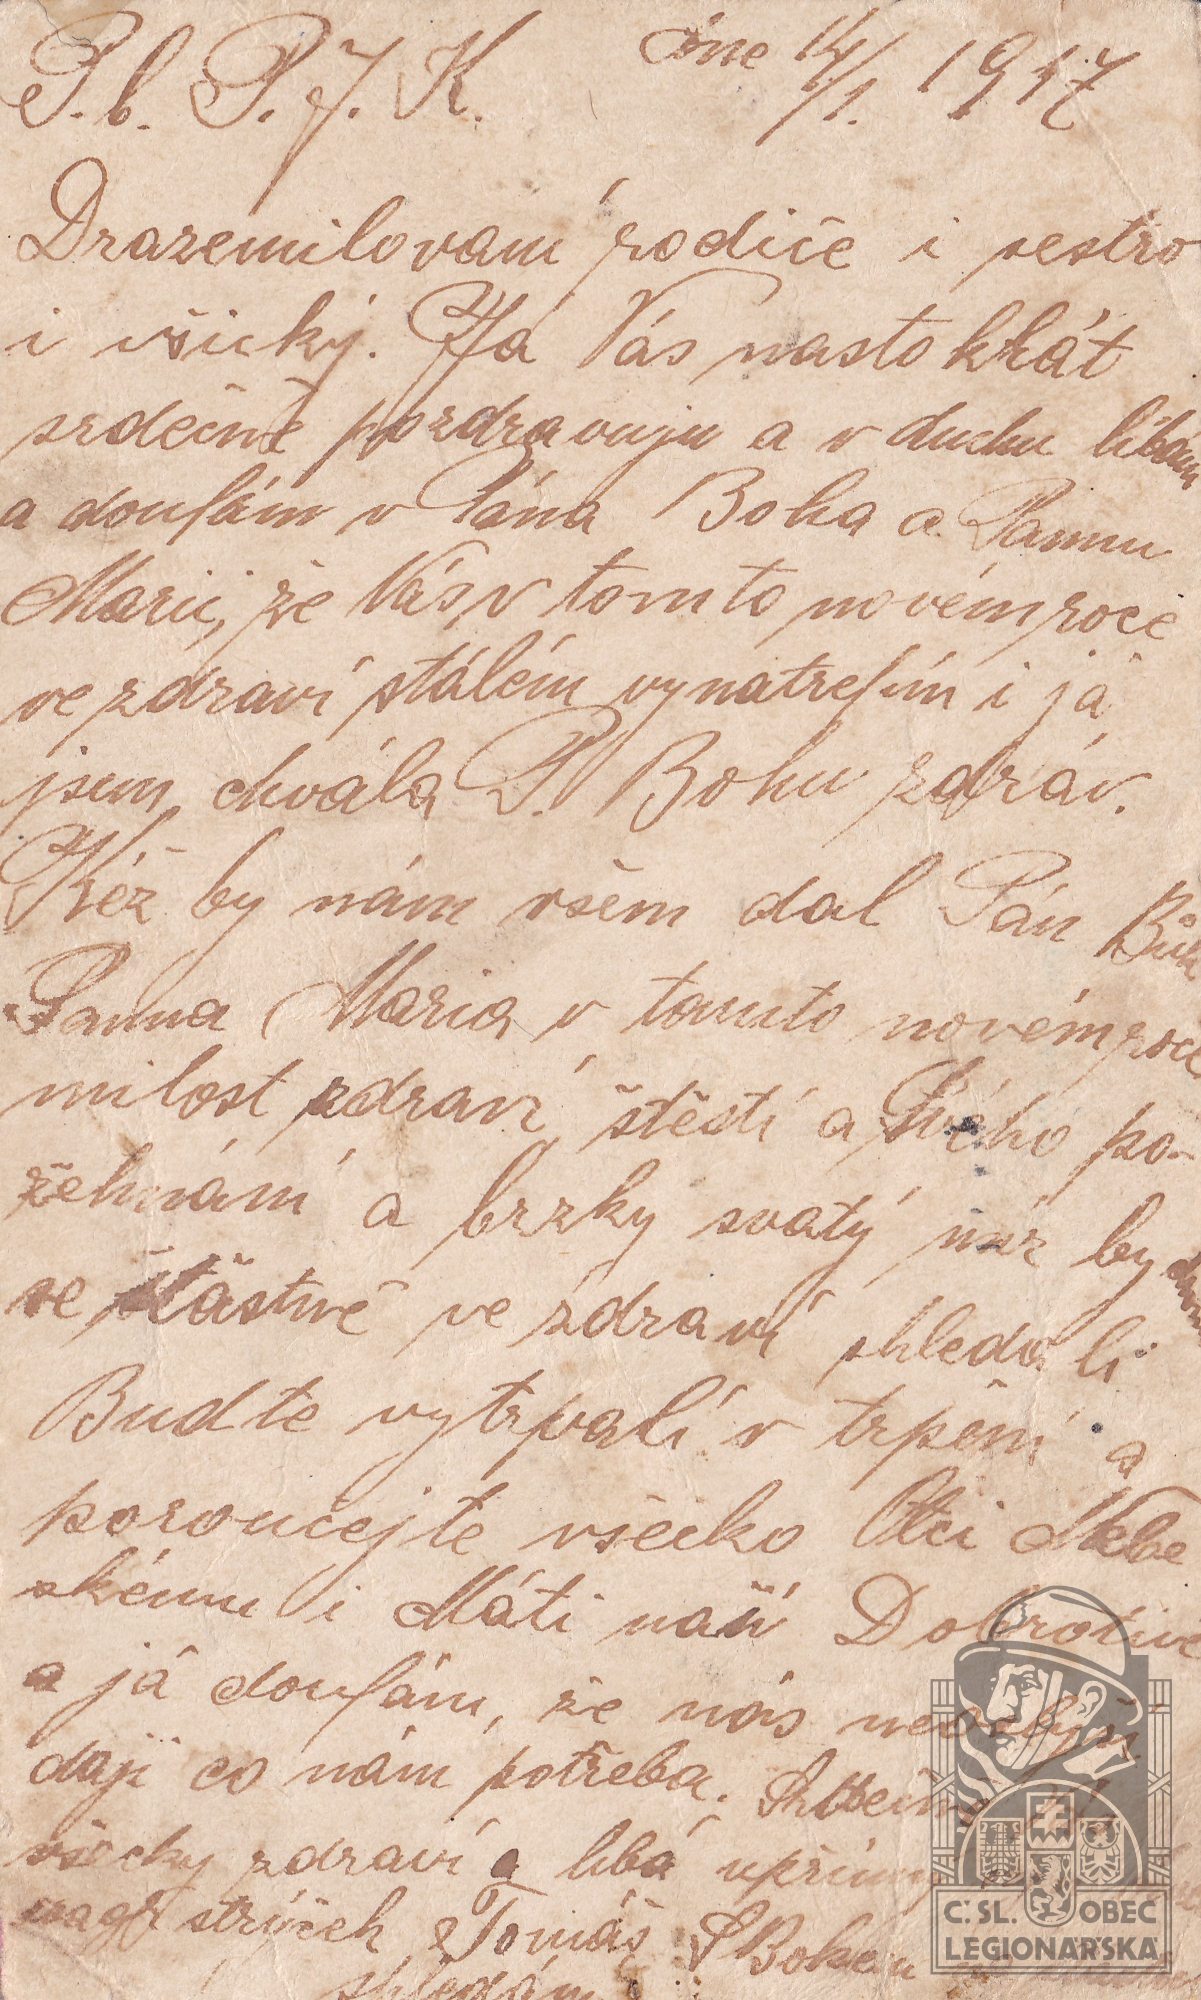 P. b. P. J. K. dne 14/1. 1917
Drazemilovaní rodiče i sestro
i všicky. Já Vás nastokhát
srdečně pozdravuju a v duchu líbam
a doufám v Pána Boha a Pannu
Marii, že Vás v tomto novém roce
ve zdraví stálém vynatrefím i já
jsem chvála P. Bohu zdráv.
Kéž by nám všem dal Pán Bůh
Panna Maria v tomto novém roce
milost zdraví štěstí a Svého po-
žehnání a brzky svatý mír by
se šťastně ve zdraví shledali
Budte vytrvalí v trpění a
poroučejte všecko Otci Nebe
skému i Máti naší Dobrotivé
a já doufám, že nás
dají co nám potřeba. Srdečně
všecky zdraví a líbá upřímný
strýček Tomáš S Bohem
shledání
Č. SL. OBEC
LEGIONÁŘSKÁ